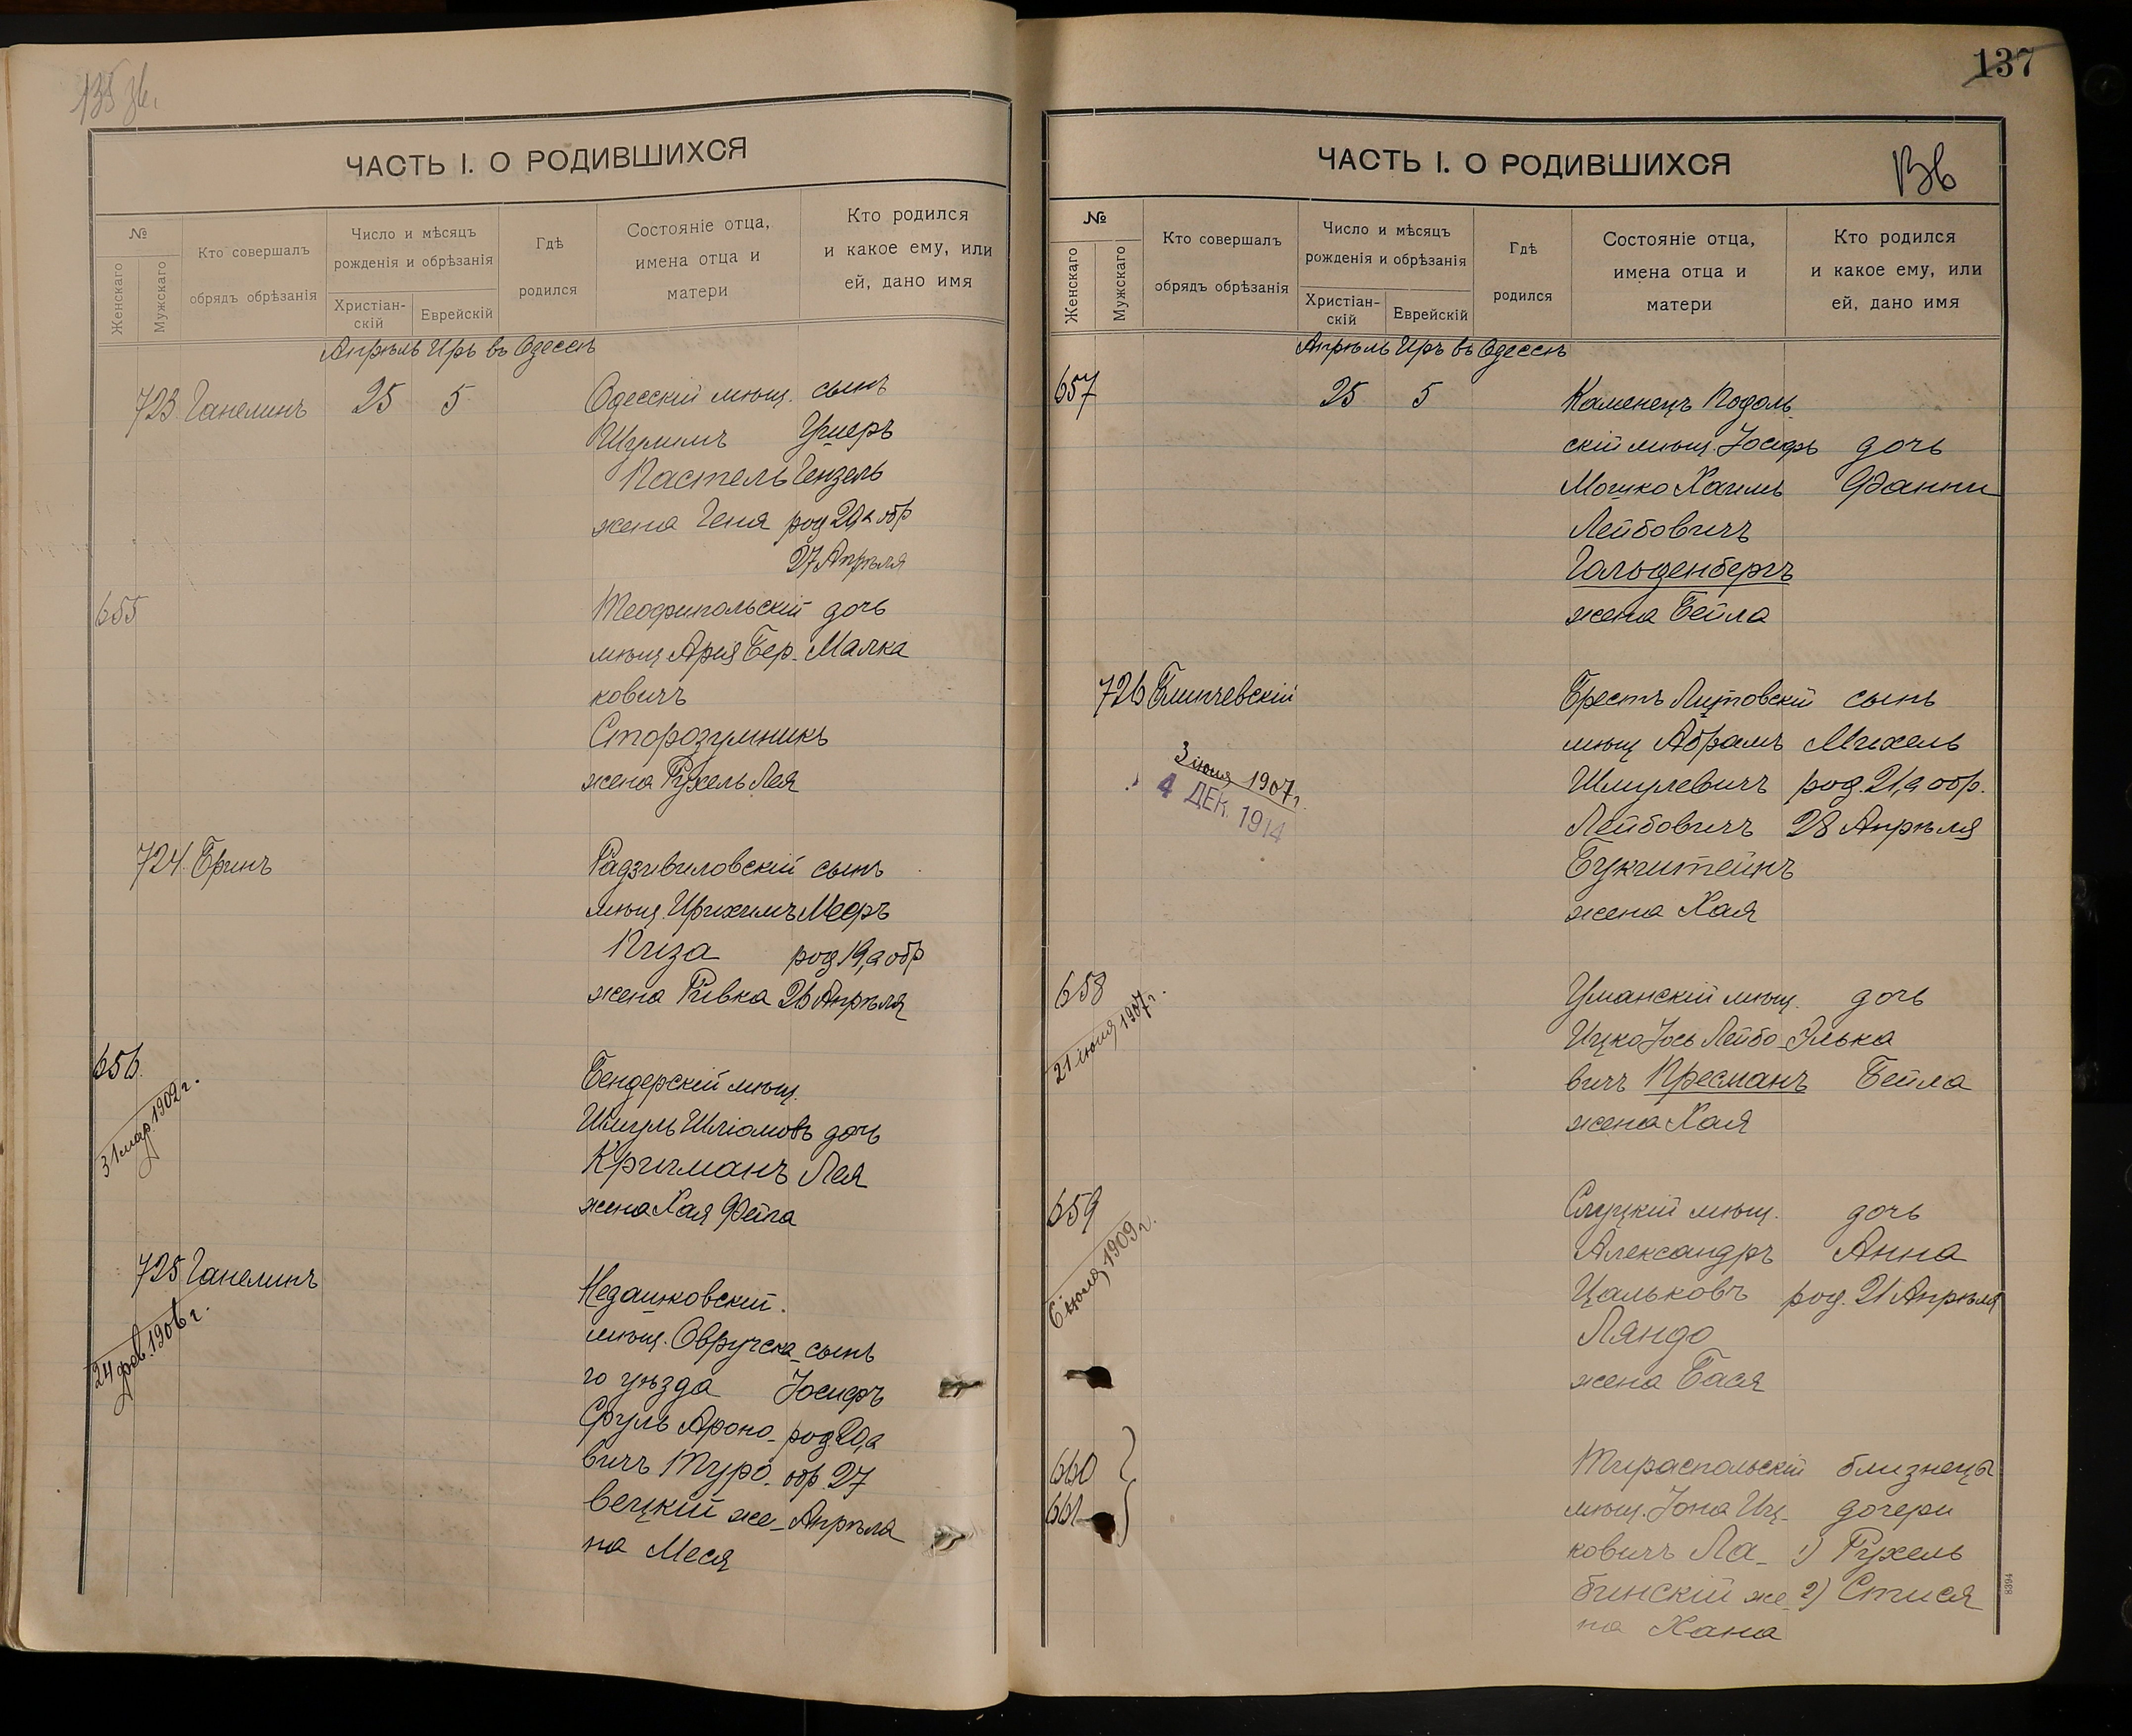 135 зв.
ЧАСТЬ I. О РОДИВШИХСЯ
№
Женскаго
Мужскаго
Кто совершалъ
обрядъ обрѣзанія
Число и мѣсяцъ
рожденія и обрѣзанія
Христіан-
скій
Еврейскій
Гдѣ
родился
Состояніе отца,
имена отца и
матери
Кто родился
и какое ему, или
ей, дано имя
Апрѣль Иръ въ Одессѣ
723 Ганелинъ 25 5 Одесскій мѣщ. сынъ
Ушеръ
Пастель Гензель
жена Геня род 20, а обр
27 Апрѣля
655 Теофипольскій дочь
мѣщ Арія Бер- Малка
ковичъ
Сторозумникъ
жена Рухель Лея
724 Бринъ Радзивиловскій сынъ
мѣщ. Ирихимъ Мееръ
Пиза род 19, а обр
жена Ривка 26 Апрѣля
656 Бендерскій мѣщ.
31 мар. 1902 г.
Шмуль Шліомовъ дочь
Кричманъ Лея
жена Хая Фейга
725 Ганелинъ Недашковскій
24 фев. 1906 г.
мѣщ. Овручска- сынъ
го уѣзда Іосифъ
Сруль Ароно- род. 20, а
вичъ Туро- обр. 27
вецкій же- Апрѣля
на Меся
137
ЧАСТЬ I. О РОДИВШИХСЯ
№
Женскаго
Мужскаго
Кто совершалъ
обрядъ обрѣзанія
Число и мѣсяцъ
рожденія и обрѣзанія
Христіан-
скій
Еврейскій
Гдѣ
родился
Состояніе отца,
имена отца и
матери
Кто родился
и какое ему, или
ей, дано имя
Апрѣль Иръ въ Одессѣ
657 25 5 Каменецъ Подоль-
скій мѣщ. Іосифъ дочь
Мошко Хаимъ Фанни
Лейбовичъ
Гольденбергъ
жена Бейла
726 Блинчевскій Брестъ Литовскій сынъ
мѣщ Абрамъ Михель
3 іюня 1907 г.
4 ДЕК. 1914
Шмулевичъ род. 21, а обр.
Лейбовичъ 28 Апрѣля
Букштейнъ
жена Хая
658 Уманскій мѣщ. дочь
21 іюня 1907 г.
Ицко Іось Лейбо- Элька
вичъ Пресманъ Бейла
жена Хая
659 Слуцкій мѣщ. дочь
6 іюля 1909 г.
Александръ Анна
Цальковъ род. 21 Апрѣля
Ляндо
жена Бася
660 Тираспольскій близнецы
661 мѣщ. Іона Иц- дочери
ковичъ Ла- 1) Рухель
бинскій же- 2) Стися
на Хана
8394